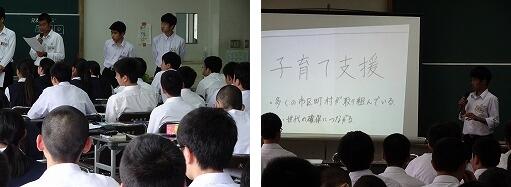 子育て支援
・多くの市区町村が取り組んでいる
・世代の確保につながる